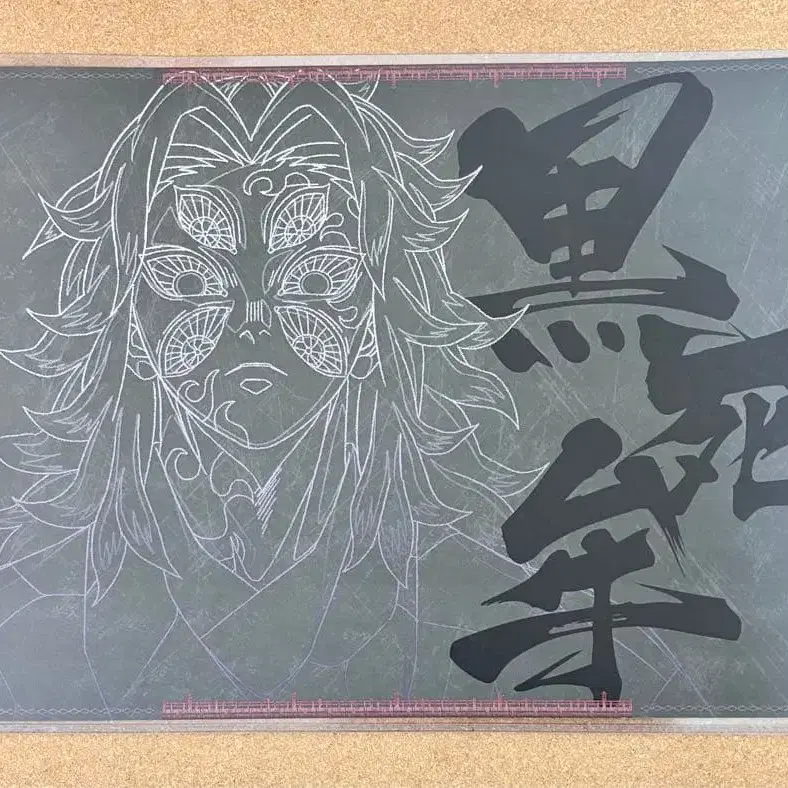 黒死牟